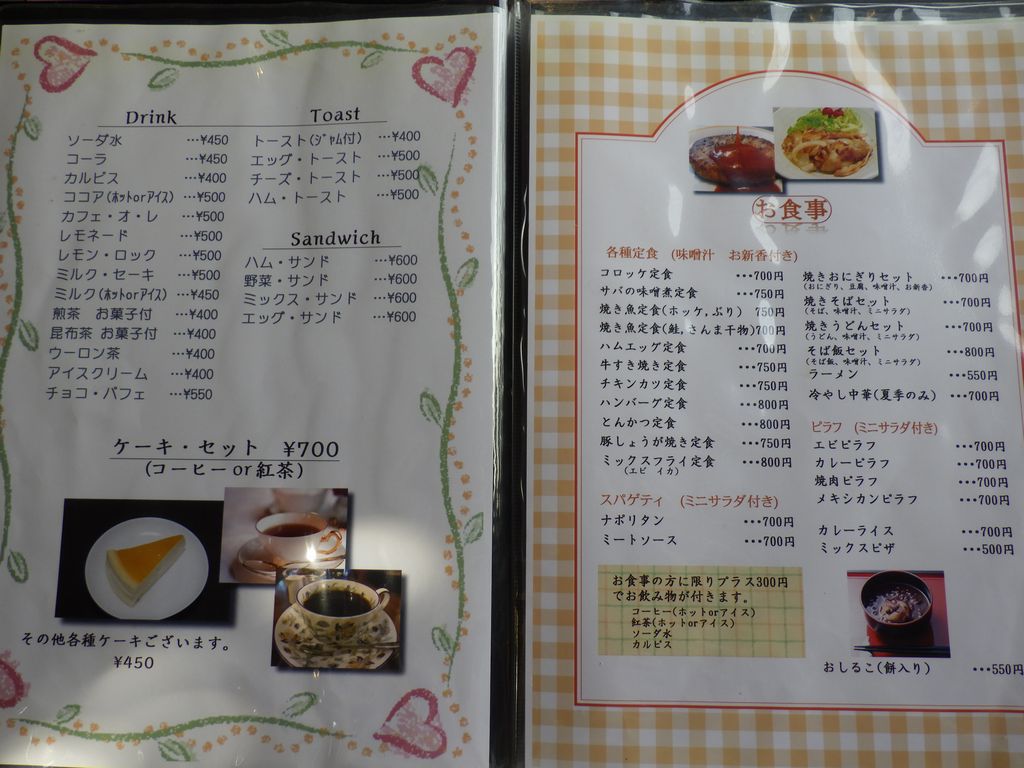 Drink
ソーダ水 …¥450
コーラ …¥450
カルピス …¥400
ココア(ホットorアイス) …¥500
カフェ・オ・レ …¥500
レモネード …¥500
レモン・ロック …¥500
ミルク・セーキ …¥500
ミルク(ホットorアイス) …¥450
煎茶 お菓子付 …¥400
昆布茶 お菓子付 …¥400
ウーロン茶 …¥400
アイスクリーム …¥400
チョコ・パフェ …¥550
Toast
トースト(ジャム付) …¥400
エッグ・トースト …¥500
チーズ・トースト …¥500
ハム・トースト …¥500
Sandwich
ハム・サンド …¥600
野菜・サンド …¥600
ミックス・サンド …¥600
エッグ・サンド …¥600
ケーキ・セット ¥700
(コーヒー or 紅茶)
その他各種ケーキございます。
¥450
お食事
各種定食 (味噌汁 お新香付き)
コロッケ定食 …700円
サバの味噌煮定食 …750円
焼き魚定食(ホッケ,ぶり) 750円
焼き魚定食(鮭,さんま干物)700円
ハムエッグ定食 …700円
牛すき焼き定食 …750円
チキンカツ定食 …750円
ハンバーグ定食 …800円
とんかつ定食 …800円
豚しょうが焼き定食 …750円
ミックスフライ定食 …800円
(エビ イカ)
スパゲティ (ミニサラダ付き)
ナポリタン …700円
ミートソース …700円
お食事の方に限りプラス300円
でお飲み物が付きます。
コーヒー(ホットorアイス)
紅茶(ホットorアイス)
ソーダ水
カルピス
焼きおにぎりセット …700円
(おにぎり、豆腐、味噌汁、お新香)
焼きそばセット …700円
(そば、味噌汁、ミニサラダ)
焼きうどんセット …700円
(うどん、味噌汁、ミニサラダ)
そば飯セット …800円
(そば飯、味噌汁、ミニサラダ)
ラーメン …550円
冷やし中華(夏季のみ) …700円
ピラフ (ミニサラダ付き)
エビピラフ …700円
カレーピラフ …700円
焼肉ピラフ …700円
メキシカンピラフ …700円
カレーライス …700円
ミックスピザ …500円
おしるこ(餅入り) …550円